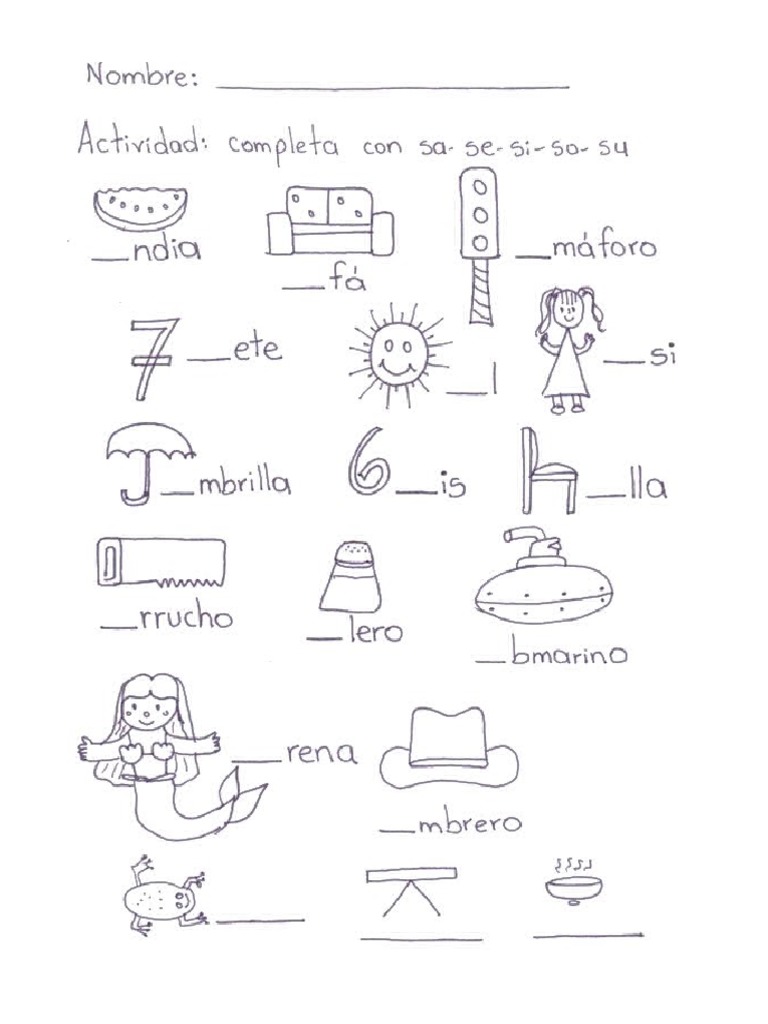 Nombre: ____________
Actividad: completa con sa- se- si- so- su
__ndia
__fá
__máforo
7 __ete
__l
__si
__mbrilla
6 __is
__lla
__rrucho
__lero
__bmarino
__rena
__mbrero